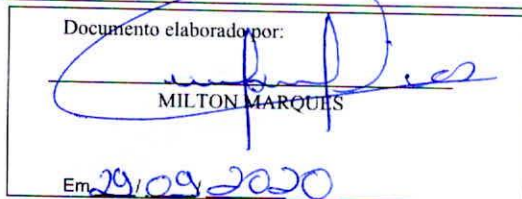 Documento elaborado por:
MILTON MARQUES
Em 29/09/2020